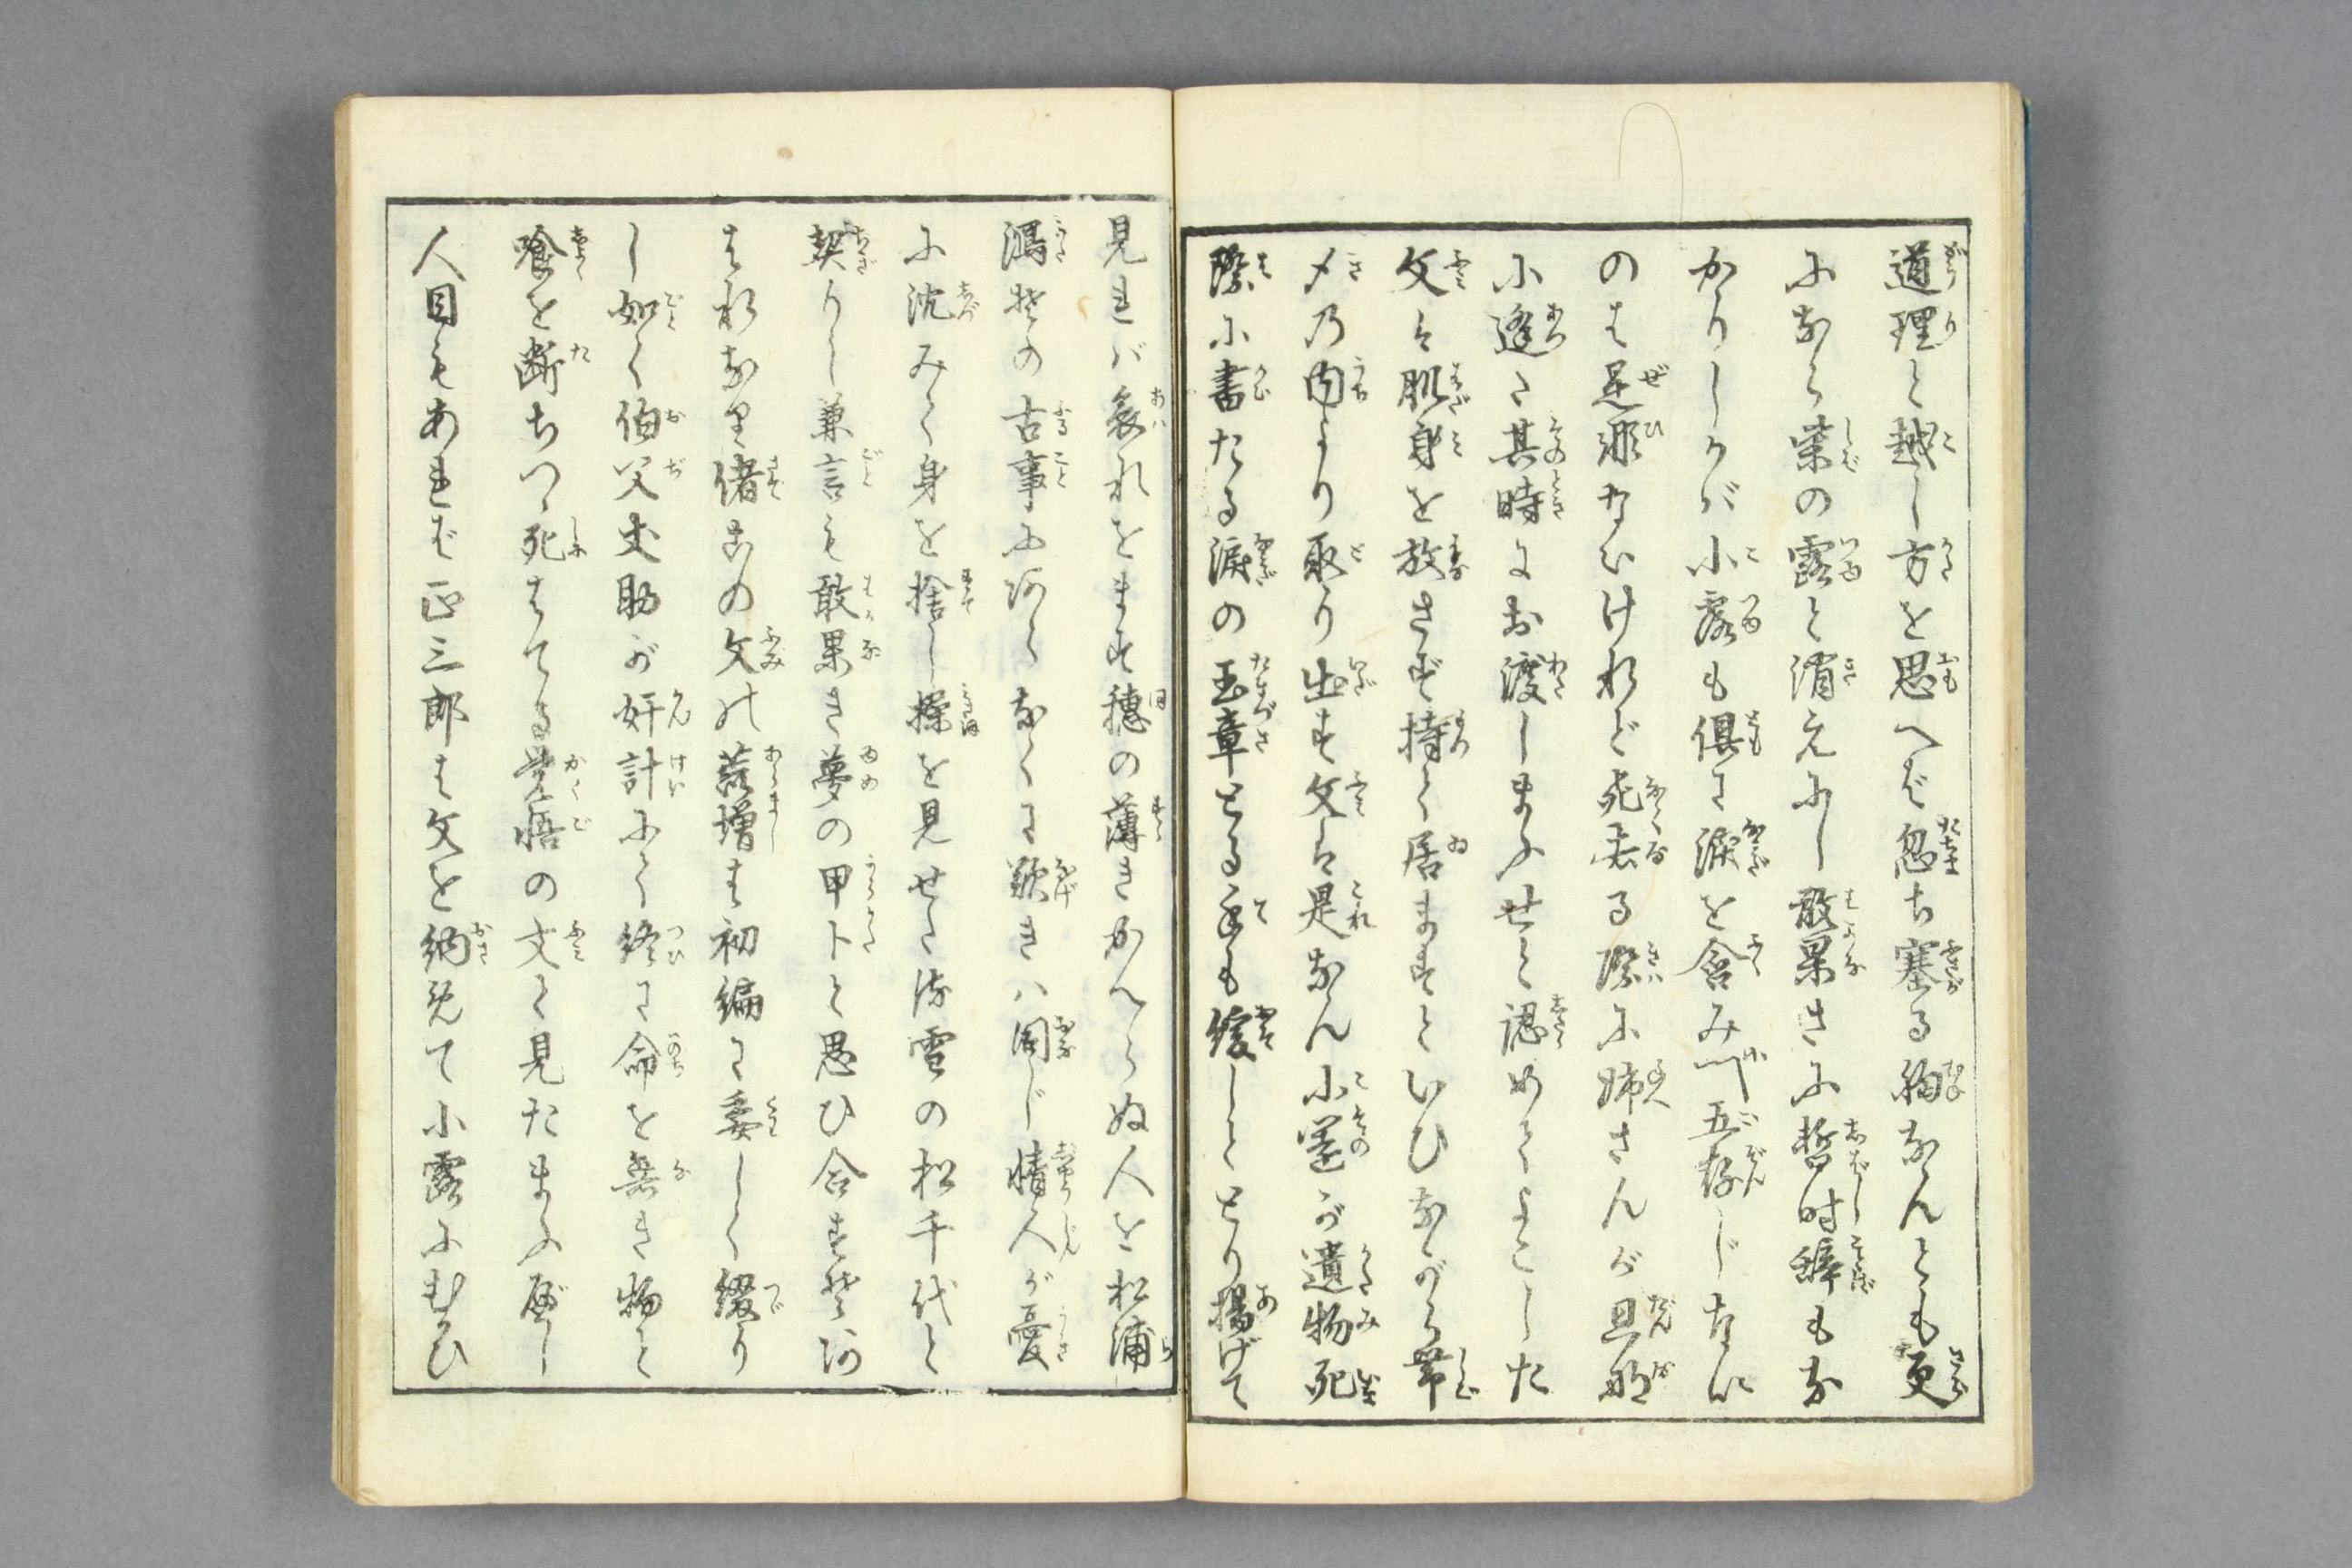 道理と越し方を思へば忽ち塞る胸なんとも更
になら柴の露と消えにし敢果きに暫時辞もな
かりしかば小露も倶に涙を含み小五存じなひ
のは是非ないけれど死去る際に姉さんが旦那
に逢た其時にお渡しまふせと認めてよこした
文は肌身を放さず持て居ますといひながら帯
〆の内より取り出す文は是なん小園が遺物死
際に書たる涙の玉章とる手も綾しととり揚げて
見れば哀れをます穂の薄きかへらぬ人を松浦
潟その古事にあらなくに歎きハ同じ情人が憂
に沈みて身を捨し操を見せた深雪の松千代と
契りし兼言も敢果き夢の甲卜と思ひ合すぞあ
はれなり偖此の文の荒増は初編に委しく綴り
し如く伯父丈助が奸計にて終に命を無き物と
喰を断ちつゝ死はてる覚悟の文と見たまふべし
人目もあれば正三郎は文を納めて小露にむかひ